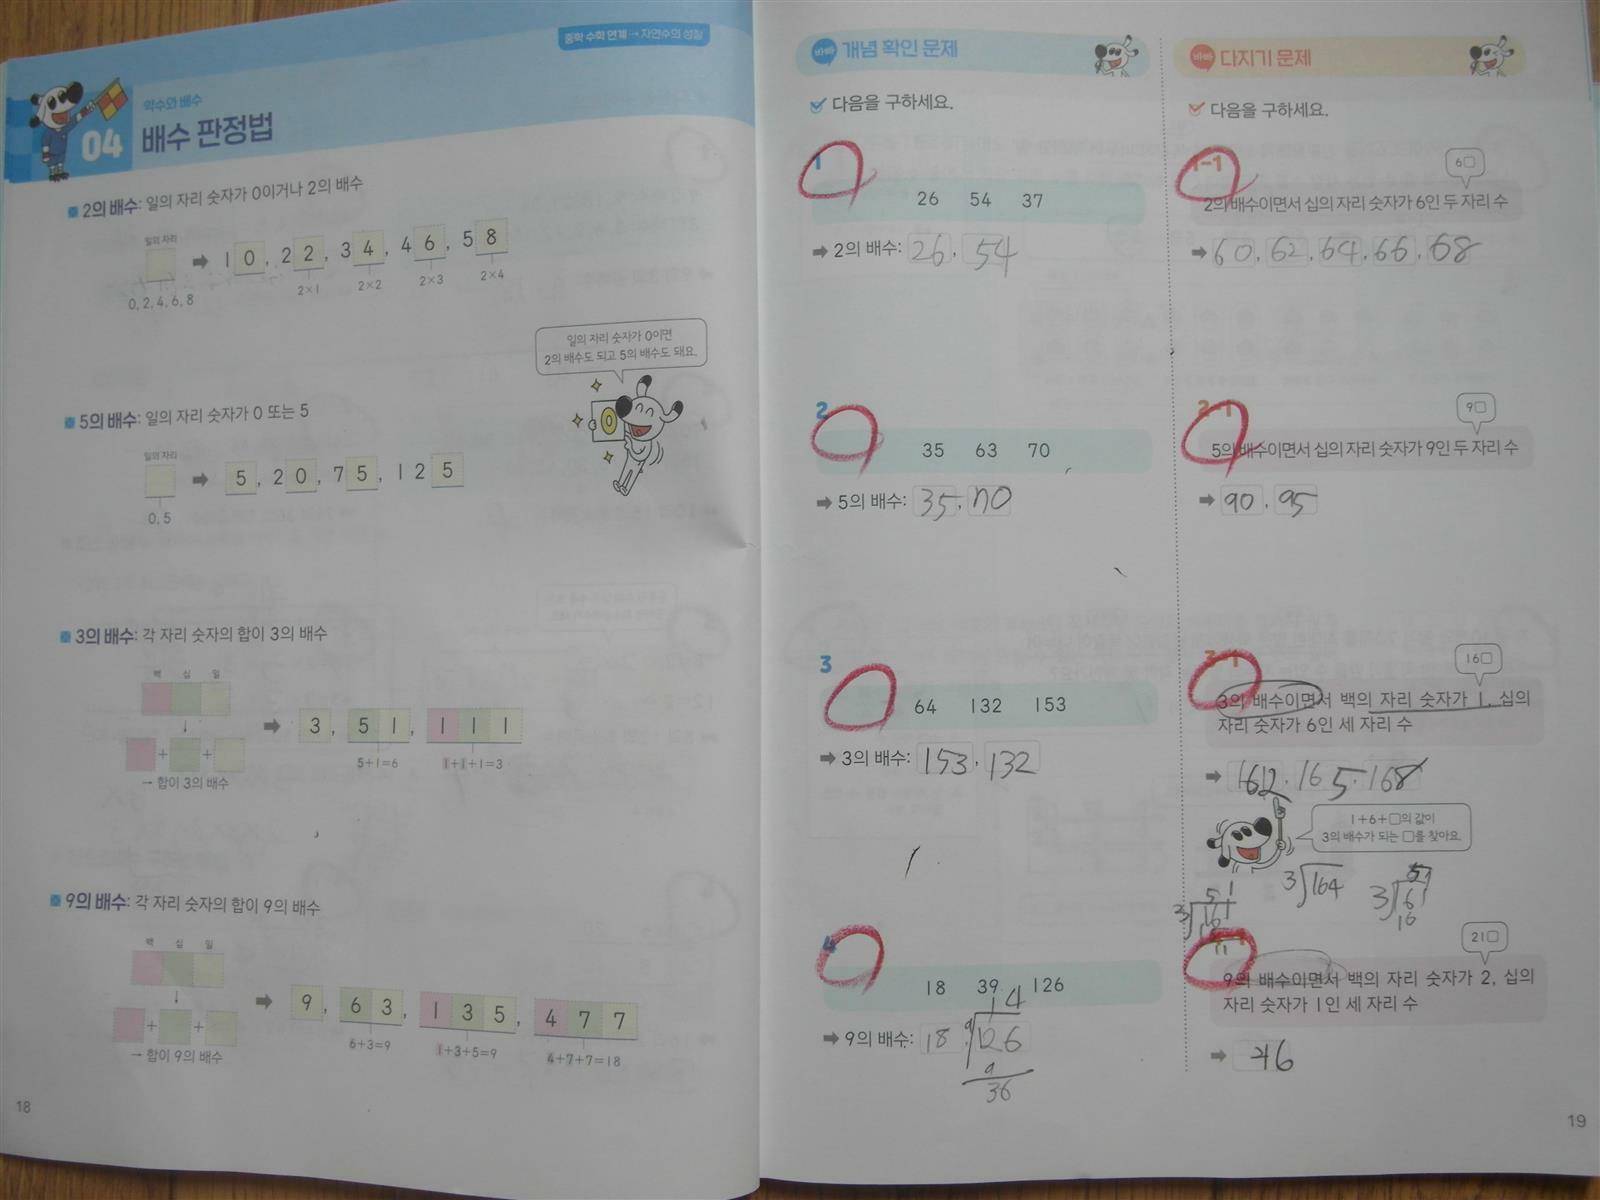 중학 수학 연계 → 자연수의 성질
약수와 배수
04 배수 판정법
2의 배수: 일의 자리 숫자가 0이거나 2의 배수
일의 자리
➡ 10, 22, 34, 46, 58
2×1 2×2 2×3 2×4
0, 2, 4, 6, 8
일의 자리 숫자가 0이면
2의 배수도 되고 5의 배수도 돼요.
0
5의 배수: 일의 자리 숫자가 0 또는 5
일의 자리
➡ 5, 20, 75, 125
0, 5
3의 배수: 각 자리 숫자의 합이 3의 배수
백 십 일
➡ 3, 51, 111
+ +
5+1=6 1+1+1=3
→ 합이 3의 배수
9의 배수: 각 자리 숫자의 합이 9의 배수
백 십 일
➡ 9, 63, 135, 477
+ +
6+3=9 1+3+5=9 4+7+7=18
→ 합이 9의 배수
18
바빠 개념 확인 문제
다음을 구하세요.
1
26 54 37
➡ 2의 배수: 26, 54
2
35 63 70
➡ 5의 배수: 35, 70
3
64 132 153
➡ 3의 배수: 153, 132
4
18 39 126
14
➡ 9의 배수: 18, 9 126
9
36
바빠 다지기 문제
다음을 구하세요.
1-1
6□
2의 배수이면서 십의 자리 숫자가 6인 두 자리 수
➡ 60, 62, 64, 66, 68
2-1
9□
5의 배수이면서 십의 자리 숫자가 9인 두 자리 수
➡ 90, 95
3-1
16□
3의 배수이면서 백의 자리 숫자가 1, 십의
자리 숫자가 6인 세 자리 수
➡ 162, 165, 168
1+6+□의 값이
3의 배수가 되는 □를 찾아요.
3 164
3 161
16
21□
9의 배수이면서 백의 자리 숫자가 2, 십의
자리 숫자가 1인 세 자리 수
➡
19